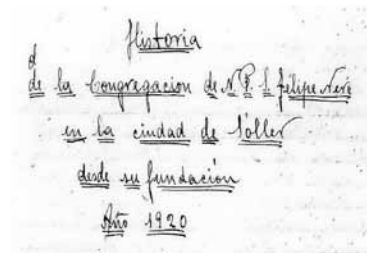 Historia
de la Congregacion de N. P. S. Felipe Neri
en la ciudad de Sóller
desde su fundación
Año 1920